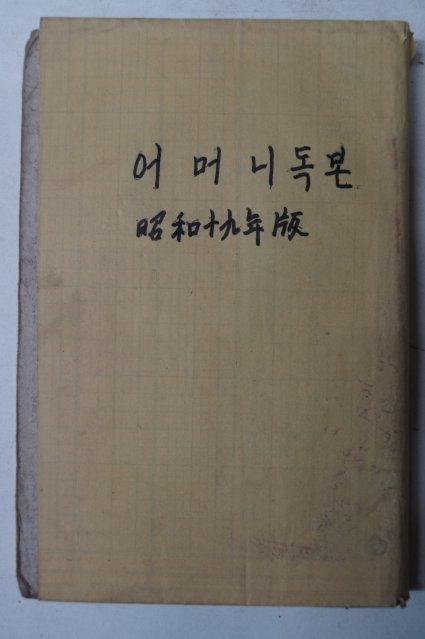 어머니독본
昭和十九年版